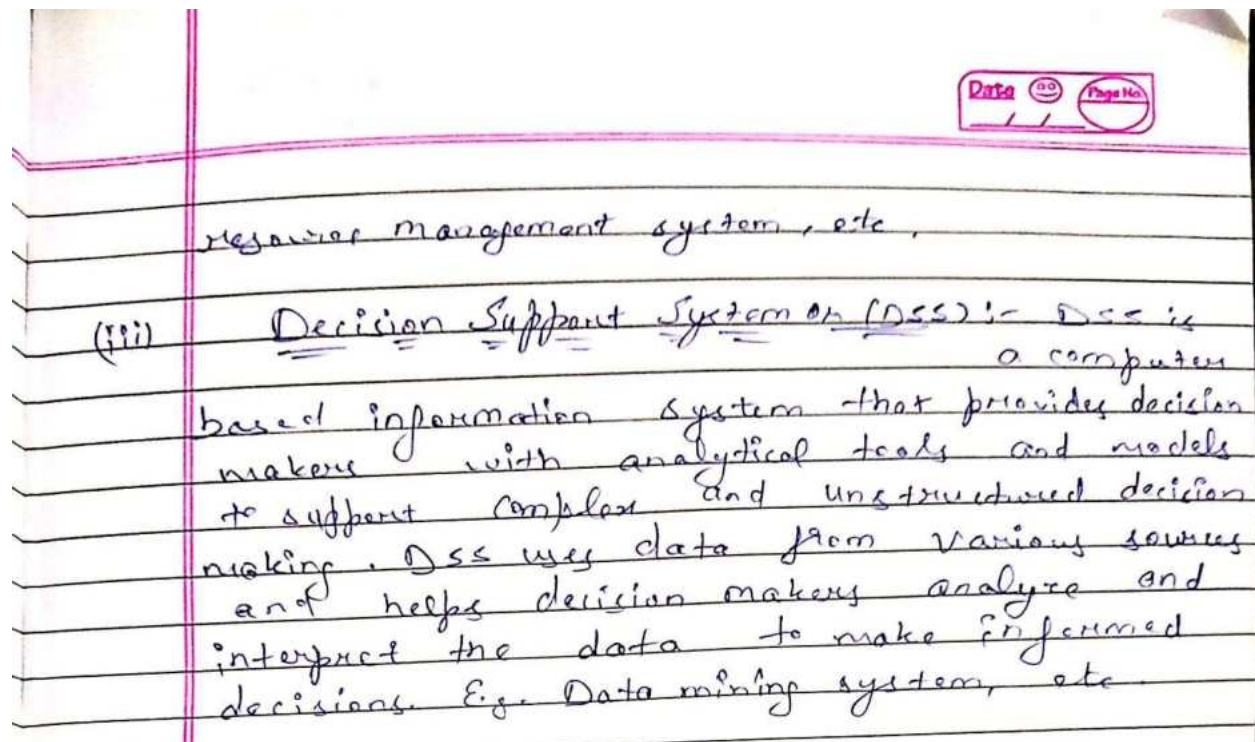 Date
Page No.
resources management system, etc.
(iii) Decision Support System or (DSS) :- DSS is
a computer
based information system that provides decision
makers with analytical tools and models
to support complex and unstructured decision
making. DSS uses data from various sources
and helps decision makers analyze and
interpret the data to make informed
decisions. E.g. Data mining system, etc.